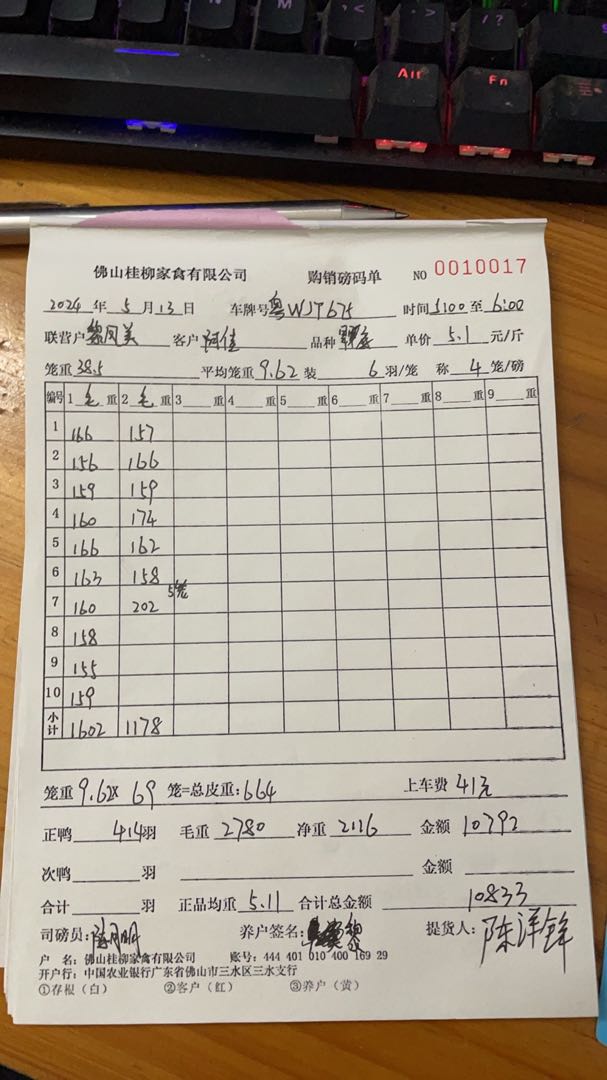 M < > ? /
Alt Fn
佛山桂柳家食有限公司 购销磅码单 NO 0010017
2024 年 5 月 13 日 车牌号 粤WJT675 时间 5:00 至 6:00
联营户 黎凤美 客户 阿佳 品种 单价 5.1 元/斤
笼重 38.5 平均笼重 9.62 装 6 羽/笼 称 4 笼/磅
编号 1 毛 重 2 毛 重 3 重 4 重 5 重 6 重 7 重 8 重 9 重
1 166 157
2 156 166
3 159 159
4 160 174
5 166 162
6 163 158
5笼
7 160 202
8 158
9 155
10 159
小计 1602 1178
笼重 9.62× 69 笼=总皮重: 664 上车费 41元
正鸭 414 羽 毛重 2780 净重 2116 金额 10792
次鸭 羽 金额
合计 羽 正品均重 5.11 合计总金额 10833
司磅员: 养户签名: 提货人: 陈洋锋
户 名: 佛山桂柳家禽有限公司 账号: 444 401 010 400 169 29
开户行: 中国农业银行广东省佛山市三水区三水支行
①存根(白) ②客户(红) ③养户(黄)